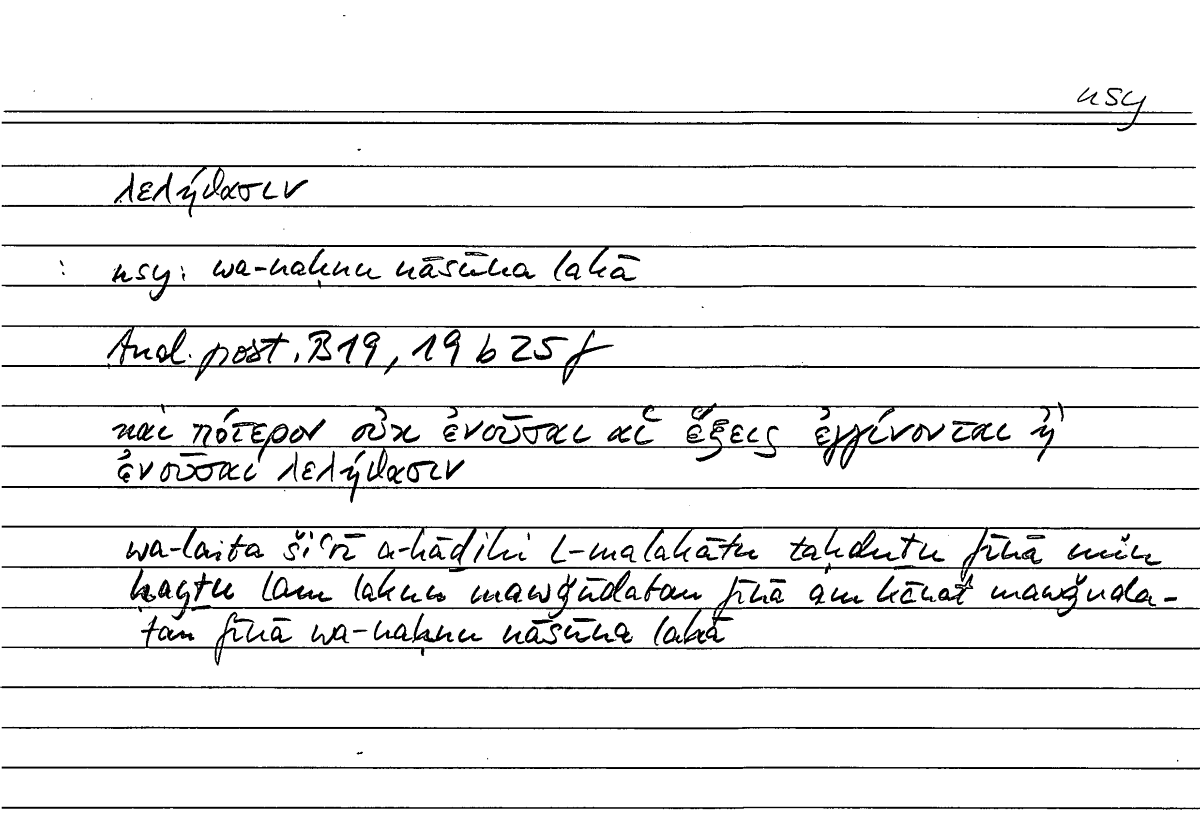 nsy
λελήθασιν
: nsy: wa-naḥnu nāsūna lahā
Anal. post. B19, 19 b 25 f
καὶ πότερον οὐκ ἐνοῦσαι αἱ ἕξεις ἐγγίνονται ἢ
ἐνοῦσαι λελήθασιν
wa-laita šiʿrī a-hāḏihi l-malakātu taḥduṯu fīnā min
ḥayṯu lam takun mawǧūdatan fīnā am kānat mawǧūda-
tan fīnā wa-naḥnu nāsūna lahā